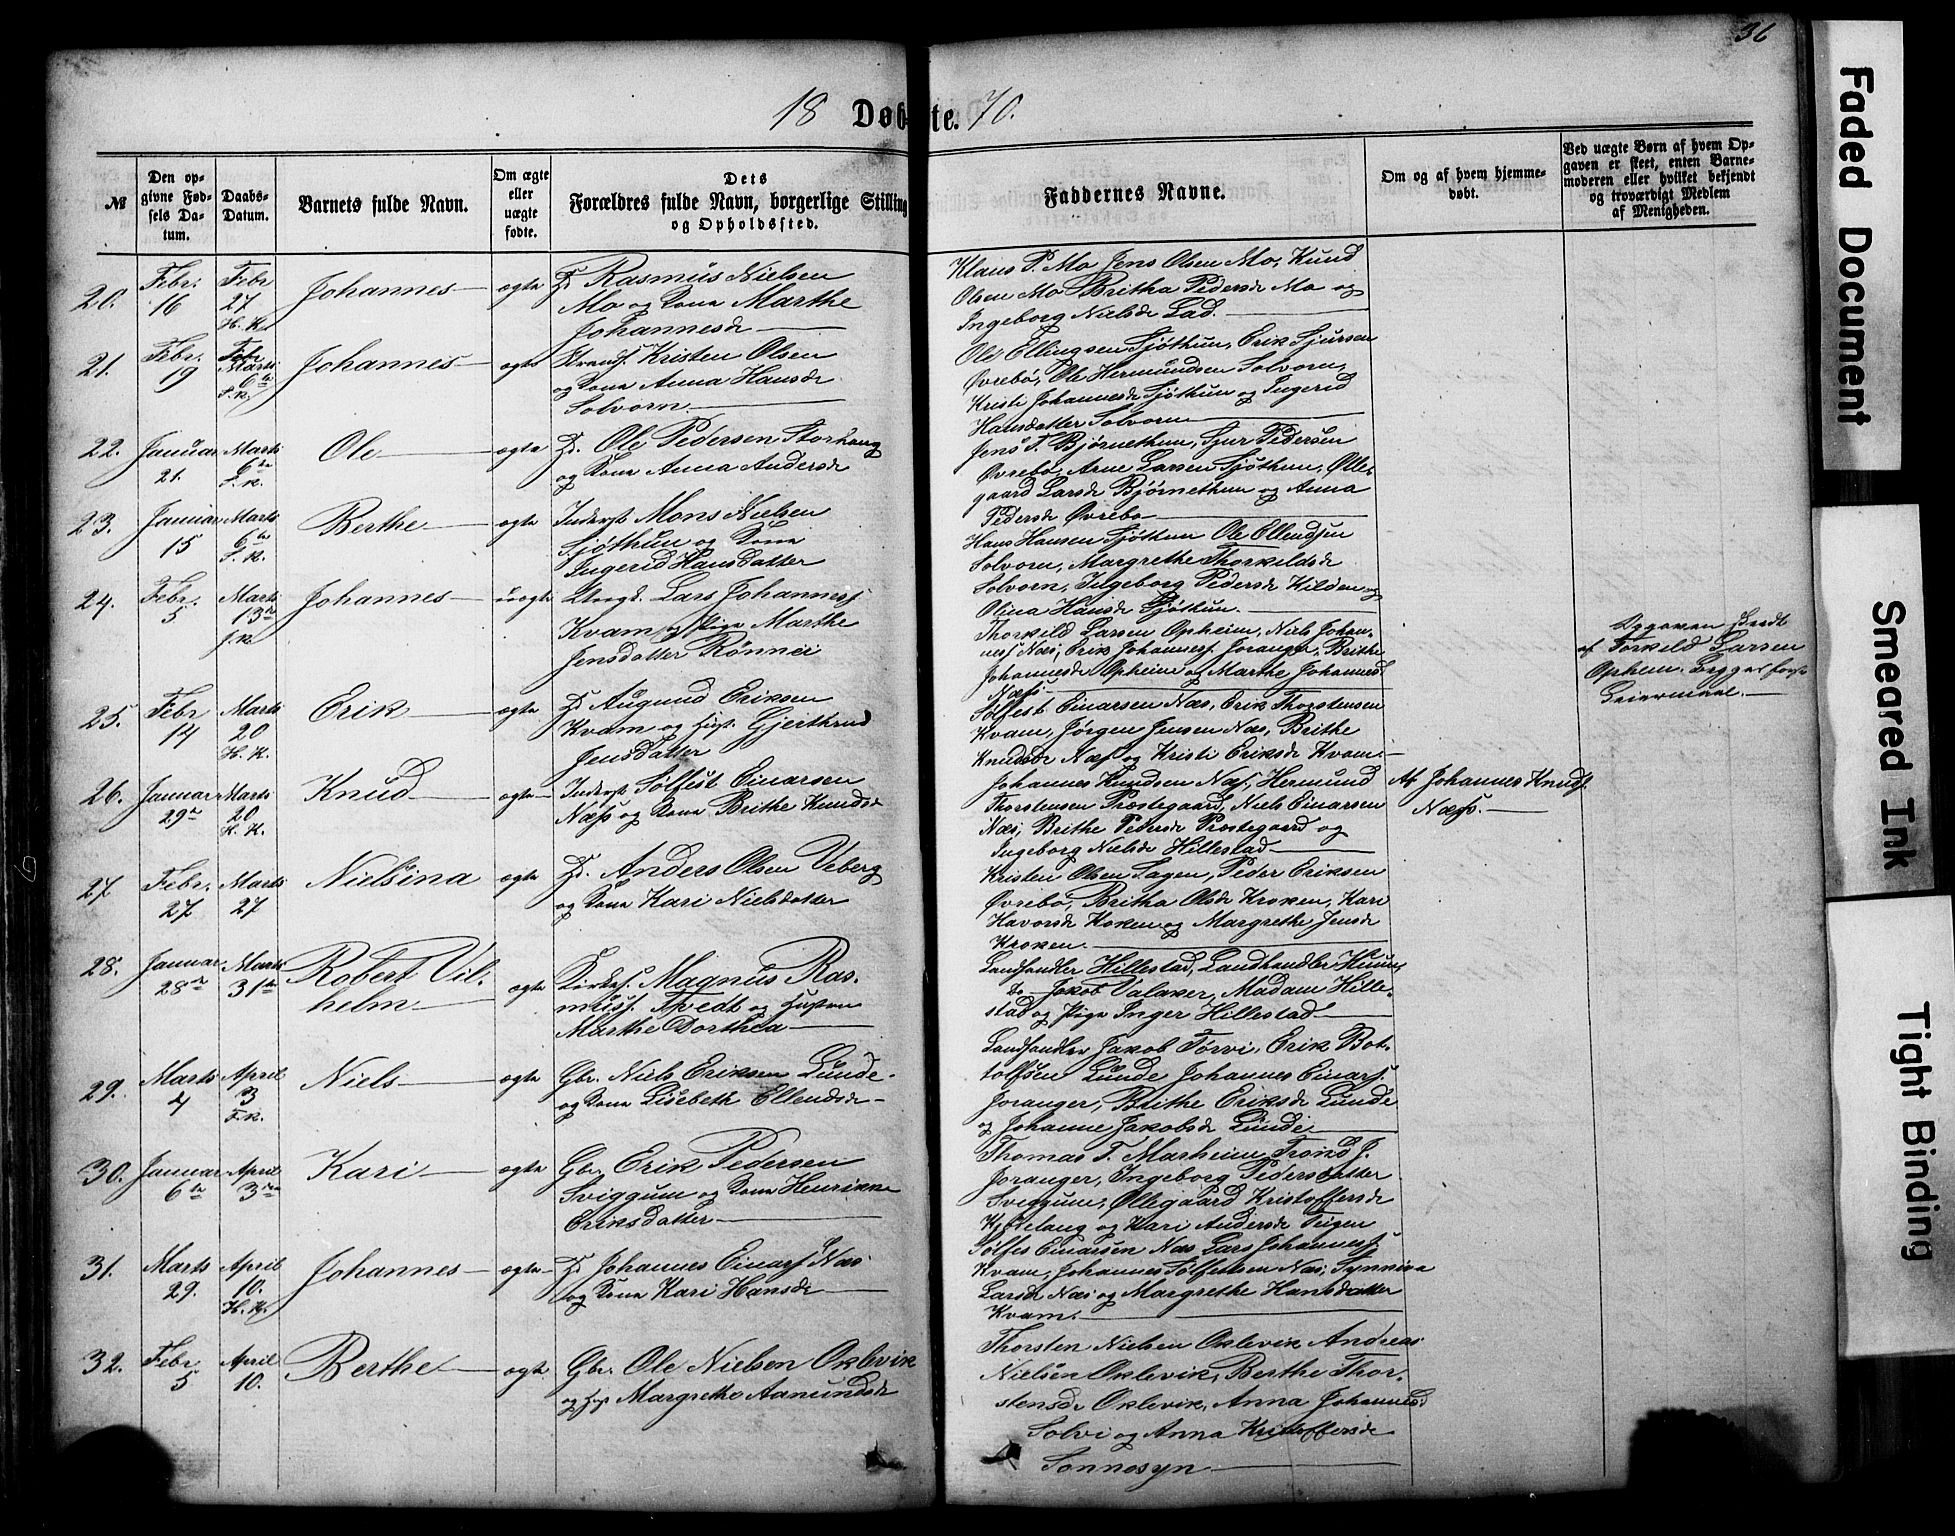 36
18 Døbte. 70.
№
Den op-
givne Fød-
sels Da-
tum.
Daabs-
Datum.
Barnets fulde Navn.
Om ægte
eller
uægte
fødte.
Dets
Forældres fulde Navn, borgerlige Stilling
og Opholdssted.
Faddernes Navne.
Om og af hvem hjemme-
døbt.
Ved uægte Børn af hvem Op-
gaven er skeet, enten Barne-
moderen eller hvilket bekjendt
og troværdigt Medlem
af Menigheden.
20.
Febr.
16
Febr
27
H. K.
Johannes
ægte
Rasmus Nielsen
Mo og Kona Marthe
Johannesdr
Klaus P. Mo Jens Olsen Mo, Knud
Olsen Mo Britha Pedersdr Mo og
Ingeborg Nielsdr Lad.
21.
Febr.
19
Febr
Marts
6te
S. K.
Johannes
ægte
Strands. Kristen Olsen
og Kona Anna Hansdr
Solvorn
Ole Ellingsen Sjøthun, Erik Sjursen
Øvrebø, Ole Hermundsen Solvorn,
Kristi Johannesdr Sjøthun og Ingerid
Hansdatter Solvorn
22.
Januar
21.
Marts
6te
S. K.
Ole
ægte
Ole Pedersen Storhaug
og Kona Anna Andersdr
Jens T. Bjørnethun, Sjur Pedersen
Øvrebø, Arne Larsen Sjøthun, Ølle-
gaard Larsdr Bjørnethun og Anna
Pedersdr Øvrebø
23.
Januar
15
Marts
6te
S. K.
Berthe
ægte
Inderst Mons Nielsen
Sjøthun og Kona
Ingerid Hansdatter
Hans Hansen Sjøthun Ole Ellendsen
Solvorn, Margrethe Thorkildsdr
Solvorn, Ingeborg Pedersdr Kilden og
Olina Hansdr Sjøthun.
24.
Febr.
5
Marts
13de
J. K.
Johannes
uægte
Ungk. Lars Johanness.
Kvam og Pige Marthe
Jensdatter Rønnei
Thorkild Larsen Opheim, Niels Johan-
nes. Næs, Erik Johanness. Joranger, Brithe
Johannesdr Opheim og Marthe Johannesd
Næss.
Opgaven skeedt
af Torkild Larsen
Opheim. Begges første
Leiermaal.
25.
Febr
14
Marts
20
H. K.
Erik
ægte
Augund Eriksen
Kvam og Hust. Gjerthrud
Jensdatter
Sølfest Einarsen Næs, Erik Thorstensen
Kvam, Jørgen Jensen Næs, Brithe
Knudsdr Næs og Kristi Eriksdr Kvam
26.
Januar
29de
Marts
20
H. K.
Knud
ægte
Inderst Sølfest Einarsen
Næss og Kona Brithe Knudsdr
Johannes Knudsen Næs, Hermund
Thorstensen Præstegaard, Niels Einarsen
Næs, Brithe Pedersdr Præstegaard og
Ingeborg Nielsdr Hillestad
Af Johannes Knuds.
Næss.
27.
Febr.
27
Marts
27
Nielsina
ægte
Anders Olsen Veberg
og Kona Kari Nielsdatter
Kristen Olsen Lagen, Peder Eriksen
Øvrebø, Britha Olsdr Kroken, Kari
Havorsdr Kroken og Margrethe Jensdr
Kroken.
28.
Januar
28de
Marts
31te
Robert Vil-
helm
ægte
Kirkes. Magnus Ras-
muss. Tvedt og Hustru
Marthe Dorthea
Landhandler Hillestad, Landhandler
Do Jakob Valaker, Madam Hille-
stad og Pige Inger Hillestad
29.
Marts
4
April
3
F. K.
Niels
ægte
Gbr. Niels Eriksen Lunde
og Kona Lisebeth Ellendsdr
Landhandler Jakob Tørvi, Erik Bot-
tolfsen Lunde Johannes Einars.
Joranger, Brithe Eriksdr Lunde
og Johanne Jakobsdr Lunde
30.
Januar
6te
April
3die
Kari
ægte
Gbr. Erik Pedersen
Sviggum og Kona Henrikke
Eriksdatter
Thomas T. Marheim, Trond J.
Joranger, Ingeborg Pedersdatter
Sviggum, Øllegaard Kristoffersdr
Kjødelaug og Kari Andersdr Teigen
31.
Marts
29.
April
10.
H. K.
Johannes
ægte
Johannes Einars. Næs
og Kona Kari Hansdr
Sølfes Einarsen Næs Lars Johanness.
Kvam, Johannes Sølfestsen Næs, Synneva
Larsdr Næs og Margrethe Hansdatter
Kvam.
32.
Febr.
5
April
10.
Berthe
ægte
Gbr. Ole Nielsen Oklevik
og Hus Margrethe Aamundsdr
Thorsten Nielsen Oklevik Andreas
Nielsen Oklevik, Berthe Thor-
stensdr Oklevik, Anna Johannesd
Solvi og Anna Kristoffersdr
Sonnesyn
Faded Document
Smeared Ink
Tight Binding